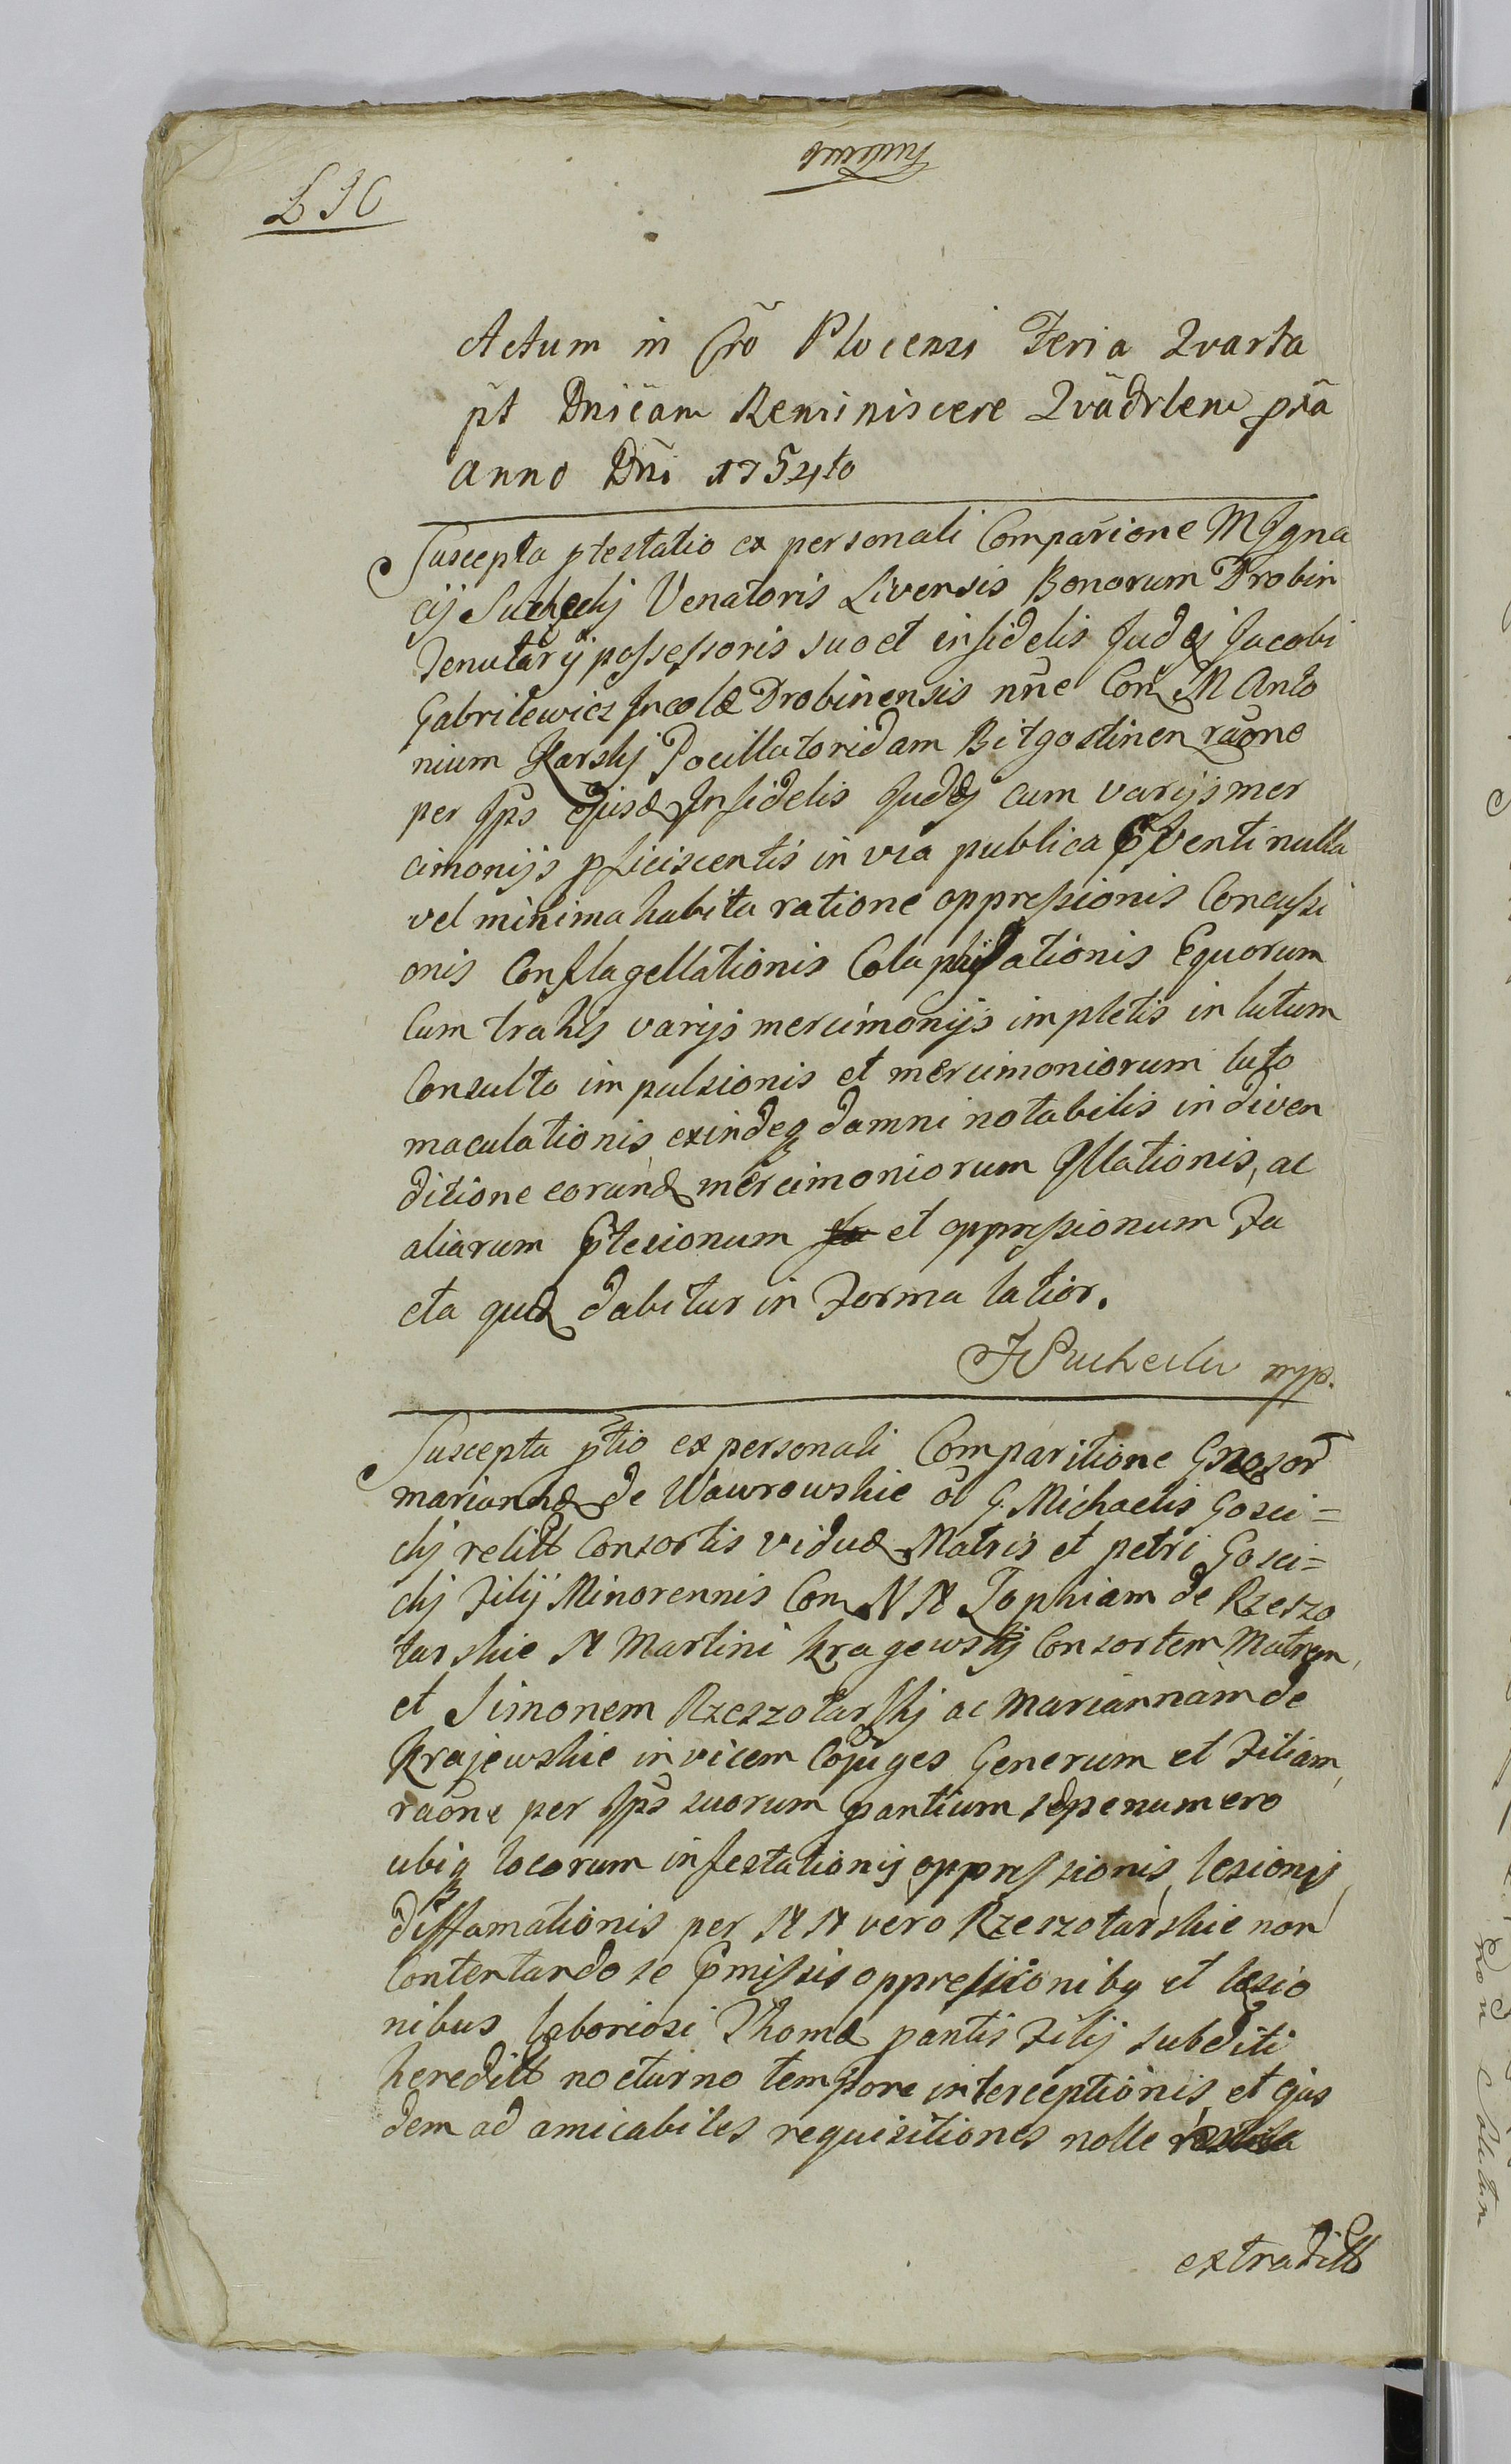 Actum in Cro Plocensi Feria Qvarta
pt Dnicam Reminiscere Qvadrlem pxa
Anno Dni 1754to
Suscepta ptestatio ex personali Comparione M Igna
cij Suchecki Venatoris Livensis Bonorum Drobin
Tenutarij possessoris suo et infidelis Judei Jacobi
Gabrilewicz Incolæ Drobinensis nne Con M Anto
nium Karskj Pocillatoridam Bitgostinen raone
per Ips ejusd Infidelis Judei cum varijs mer
cimonijs pficiscentis in via publica Pventi nulla
vel minima habita ratione oppressionis Concussi
onis Conflagellationis Colaphisationis Equorum
Cum trahis varijs mercimonijs impletis in lutum
Consulto impulsionis et mercimoniorum luto
maculationis exindeq damni notabilis in diven
ditione eorund mercimoniorum Illationis, ac
aliarum Plesionum et oppressionum Fa
cta quæ dabitur in Forma latior.
JSuchecki mp.
Suscepta ptio ex personali Comparitione Gnosor
mariannæ de Wawrowskie ol G. Michaelis Gosci=
ckj relictæ Consortis viduæ Matris et petri Gosci=
ckj Filij Minorennis Con N N Zophiam de Rzeszo
tarskie N Martini Kragewskj Consortem Matrem,
et Simonem Rzeszotarskj ac Mariannam de
Krajewskie invicem Cojuges Generum et Filiam,
raone per Ips suorum pantium sæpenumero
ubiq locorum infestationis oppressionis, lesionis,
diffamationis per N N vero Rzeszotarskie non
Contentando se Pmissis oppressionibq et læsio
nibus laboriosi Thomæ pantis Filij subditi
heredittt nocturno tempore interceptionis et ejus
dem ad amicabiles requisitiones nolle
extraditt